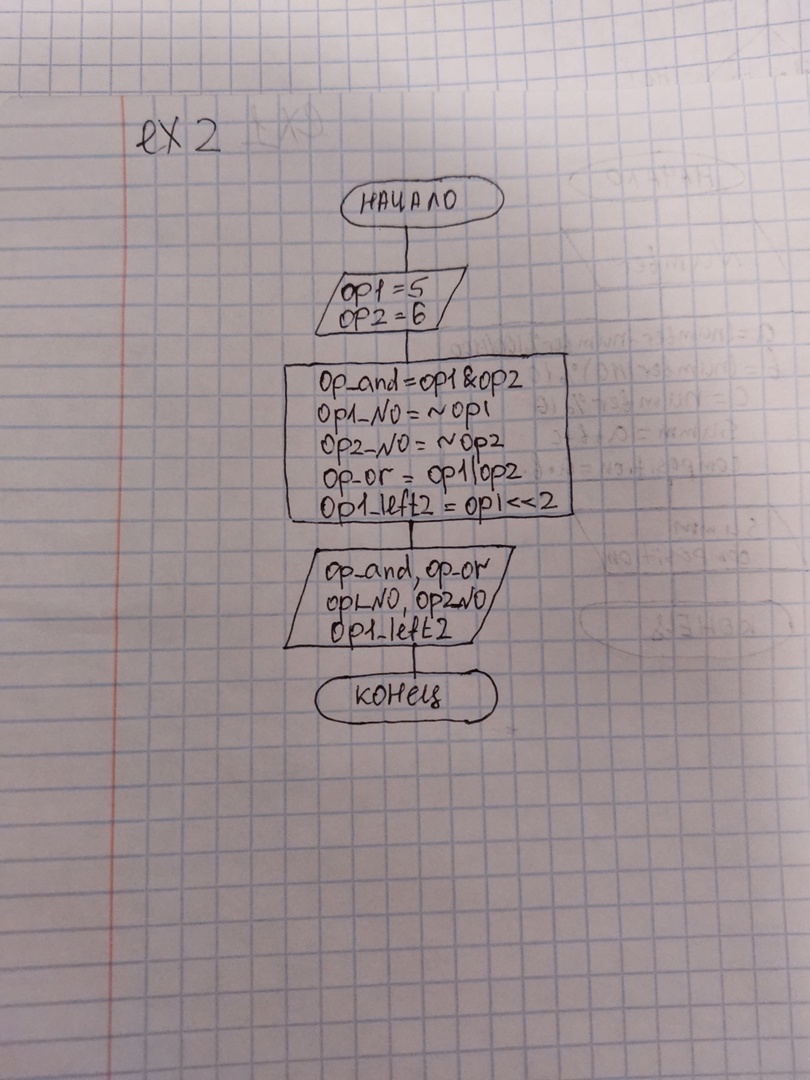 ex 2
НАЧАЛО
op1 = 5
op2 = 6
op_and = op1 & op2
op1_NO = ~op1
op2_NO = ~op2
op_or = op1|op2
op1_left2 = op1<<2
op_and, op_or
op1_NO, op2_NO
op1_left2
КОНЕЦ